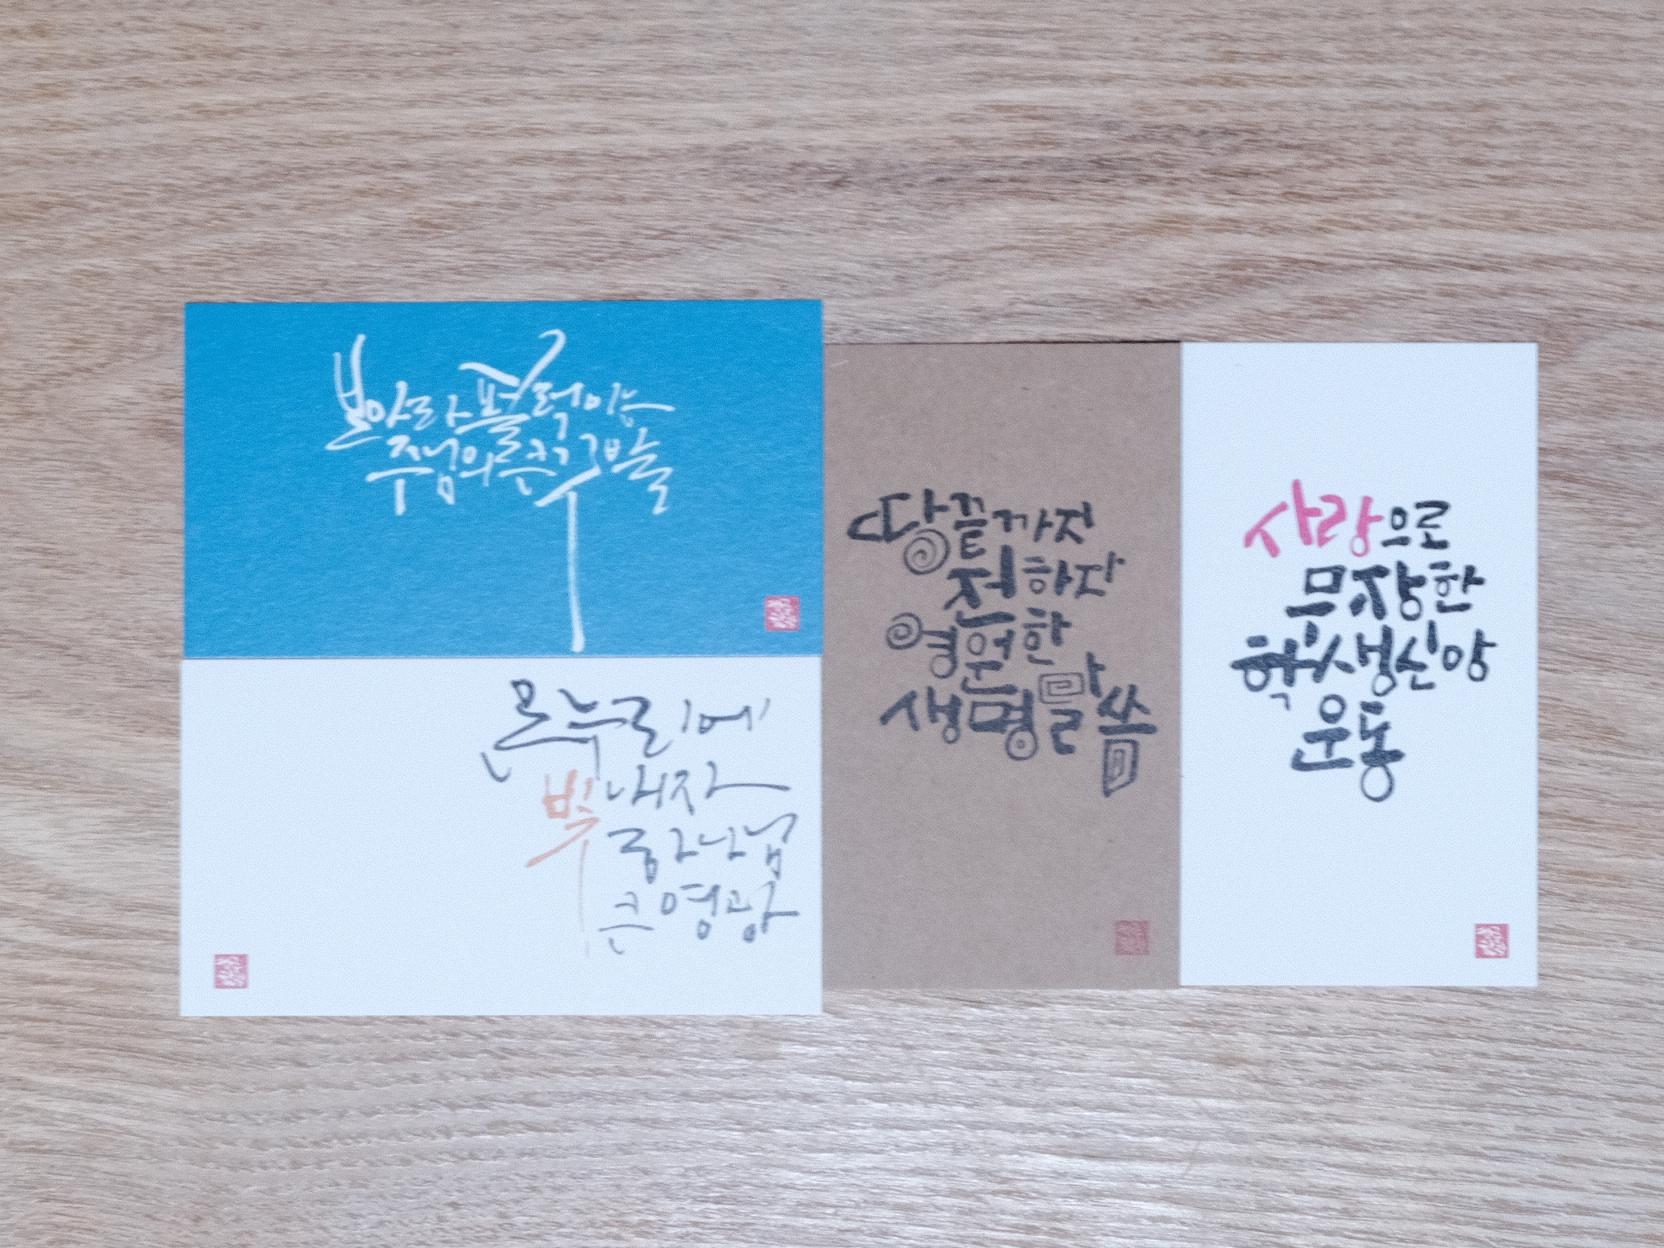 보아라 펄럭이는
주님의 큰 구름
온누리에
빛 내자
하나님
큰 영광
땅끝까지
전하자
영원한
생명 말씀
사랑으로
무장한
학생신앙
운동